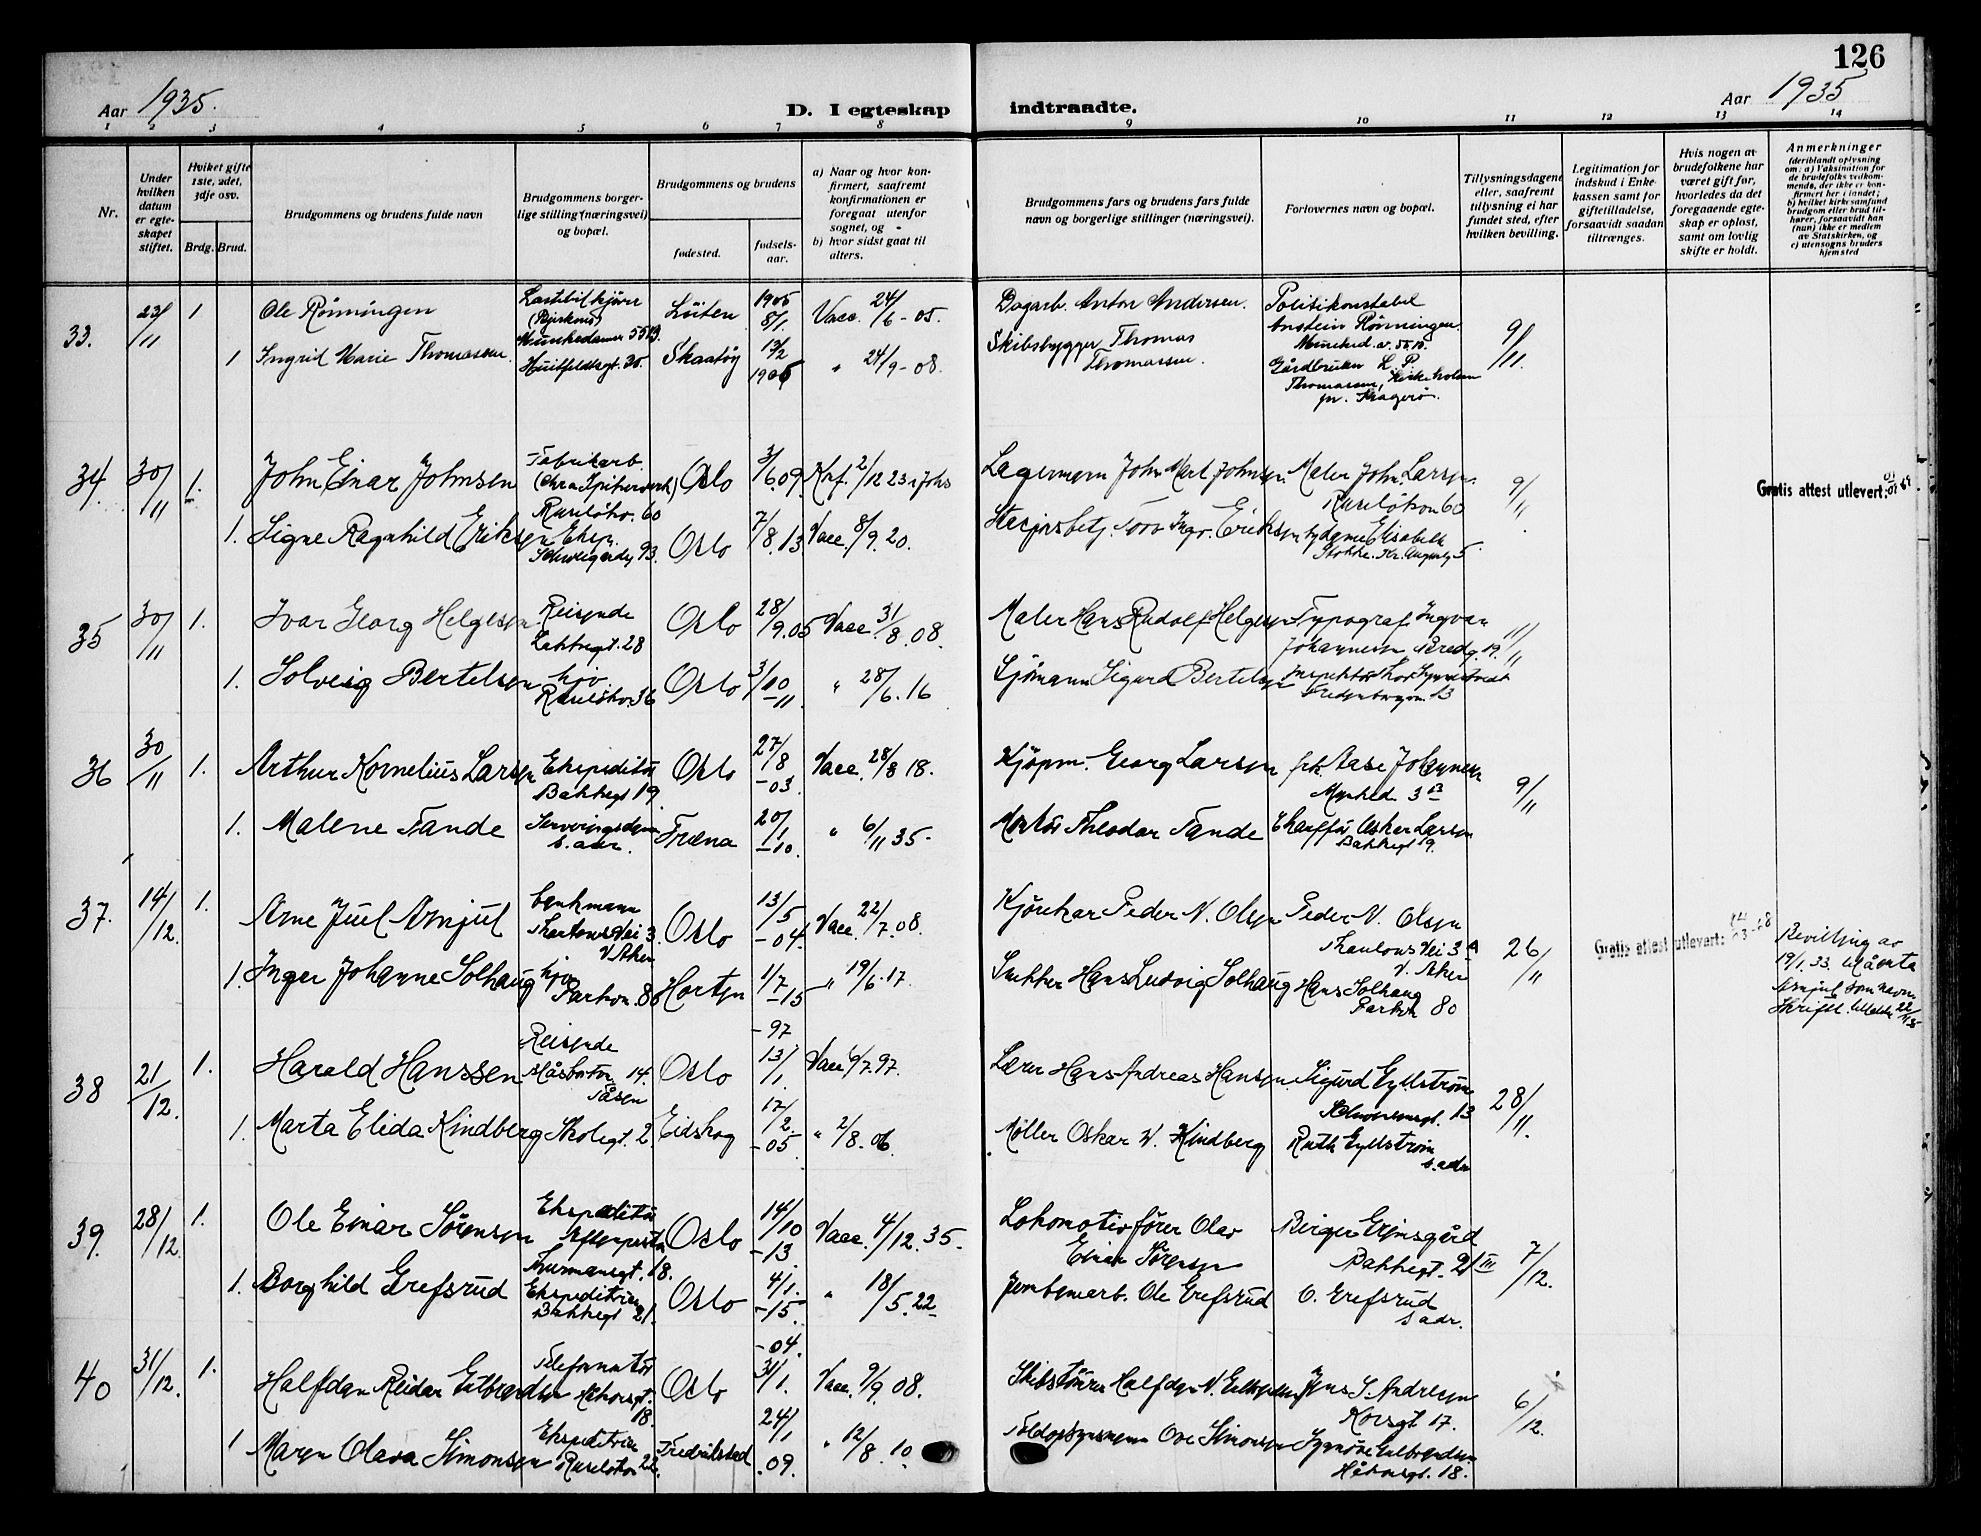 126
Aar 1935.
D. I egteskap indtraadte.
Aar 1935
1 2 3 4 5 6 7 8 9 10 11 12 13 14
Nr.
Under hvilken datum er egteskapet stiftet.
Hvilket gifte 1ste, 2det, 3dje osv.
Brdg. Brud.
Brudgommens og brudens fulde navn
Brudgommens borgerlige stilling (næringsvei) og bopæl.
Brudgommens og brudens
fødested.
fødselsaar.
a) Naar og hvor konfirmert, saafremt konfirmationen er foregaat utenfor sognet, og
b) hvor sidst gaat til alters.
Brudgommens fars og brudens fars fulde navn og borgerlige stillinger (næringsvei).
Forlovernes navn og bopæl.
Tillysningsdagene eller, saafremt tillysning ei har fundet sted, efter hvilken bevilling.
Legitimation for indskud i Enkekassen samt for giftetilladelse, forsaavidt saadan tiltrænges.
Hvis nogen av brudefolkene har været gift før, hvorledes da det foregaaende egteskap er opløst, samt om lovlig skifte er holdt.
Anmerkninger (deriblandt oplysning om: a) Vaksination for de brudefolks vedkommende, der ikke er konfirmert her i landet; b) hvilket kirkesamfund brudgom eller brud tilhører, forsaavidt han (hun) ikke er medlem av Statskirken, og c) utensogns bruders hjemsted
33. 23/11 1 Ole Rönningen Lastebilkjører Munkedamsv 55 B. Löiten 1905 8/1 Vacc. 24/6-05. Dagarb. Anton Andersen. Politikonstabel Anstein Rönningen. 9/11.
1 Ingrid Marie Thomassen Huitfeldtsgt. 35. Skaatöy 13/2 1906 " 24/9-08. Skibsbygger Thomas Thomassen. Gårdbruker L. P. Thomassen, pr. Kragerö.
34. 30/11 1. John Einar Johnsen Fabrikarb. Ruselökv. 60 Oslo 3/6.09. Knf. 2/12 23 i Johs Lagermann John Mart. Johnsen Maler John. Larsen Ruselökvn 60 9/11 Gratis attest utlevert:
1. Signe Ragnhild Eriksen Eksp. Schweigaardsg 93. Oslo 7/8.13 Vacc. 8/9.20. Tore Ingv. Eriksen Elisabeth Stokke. Kr. Augustsg 5.
35 30/11 1. Ivar Georg Helgesen Reisende Lakkegt. 28 Oslo 28/9.05 Vacc. 31/8.08. Maler Hans Rudolf Helgesen Typograf Ingvar Johannesen 19. 11/11
1. Solveig Bertelsen hjv. Ruselökv. 36 Oslo 3/10-11 " 28/6.16 Sjömann Sigurd Bertelsen Inspektör Thor 13
36 30/11 1. Arthur Kornelius Larsen Ekspeditör Bakkegt 19. Oslo 27/8-03. Vacc. 28/8 18. Kjöpm. Georg Larsen frk. Aase Johannesen Munked. 3 B 9/11
1. Malene Tande Serveringsdame s. adr. Fræna 20/1-10. " 6/11 35- Theodor Tande Chaufför Asker Larsen Bakkegt 19.
37. 14/12. 1. Arne Juel Arnjul Thaulows Vei 3 V. Aker Oslo 13/5-04. Vacc. 22/7.08. Peder N. Olsen Peder N. Olsen Thaulows Vei 3 A V. Aker 26/11 Gratis attest utlevert: Bevilling av 19/1.33. til å anta Arnjul som navn
1. Inger Johanne Solhaug hjv Parkvn. 80 Horten 1/7-15 " 19/6.17. Snekker Hans Ludvig Solhaug Hans Solhaug Parkvn 80
38 21/12. 1. Harald Hanssen Reisende 14. Tåsen Oslo -97 13/1. Vacc 6/7.97. Lærer Hans Andreas Hansen. Sigurd Gyllström 13 28/11.
1. Marta Elida Kindberg Skolegt. 2. Eidskog 17/2.-05. " 2/8.06. Møller Oskar W. Kindberg Ruth Gyllström s. adr
39. 28/12. 1. Ole Einar Sörensen Ekspeditör Aftenposten Thurmannsgt. 18. Oslo 14/10-13 Vacc. 4/12.35. Lokomotivförer Olav Einar Sörensen Birger Bakkegt. 21 III 7/12.
1. Borghild Grefsrud Ekspeditrise Bakkegt 21. Oslo 4/1.-15. " 18/5.22 Jernbanearb. Ole Grefsrud O. Grefsrud s adr.
40 31/12. 1. Halfdan Reidar Gulbrandsen Telefonmontör 18. Oslo -04. 31/1. Vacc. 9/9.08. Halfdan N. Gulbrandsen Jens S. Andresen Korsgt 17. 6/12.
1 Maren Olava Simonsen Ekspeditrise Ruselökvn 22. Fredrikstad 24/1.09. " 12/8.10. Toldopsynsmann Ove Simonsen Synnöve Gulbrandsen Håkonsgt. 18.